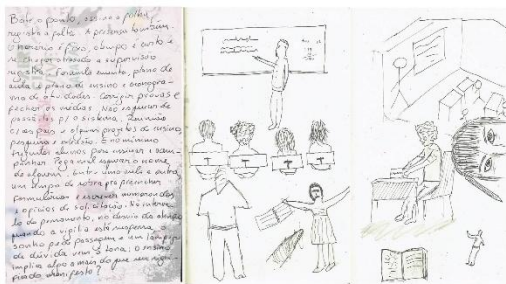 Bate o ponto, assina a folha,
registra a falta. A presença também.
O horário é fixo, o tempo é curto e
supervisão
registra. Formula ementa, plano de
aula e plano de ensino e cronogra-
ma de atividades. Corrigir provas e
fechar as médias. Não esquecer de
passá-las p/ o sistema. Reunião
c/ os pais e alguns projetos de ensino
pesquisa e extensão. E no mínimo
alunos para ensinar e acom-
panhar. Pega mal esquecer o nome
de alguém. Entre uma aula e outra
um tempo de sobra pra preencher
formulários e escrever memorandos
e ofícios de solicitação. No interva-
lo do pensamento, no desvio da atenção
quando a vigília está suspensa, o
sonho pede passagem e um lampejo
de dúvida vem à tona: o ensino
implica algo a mais do que um signi-
ficado manifesto?